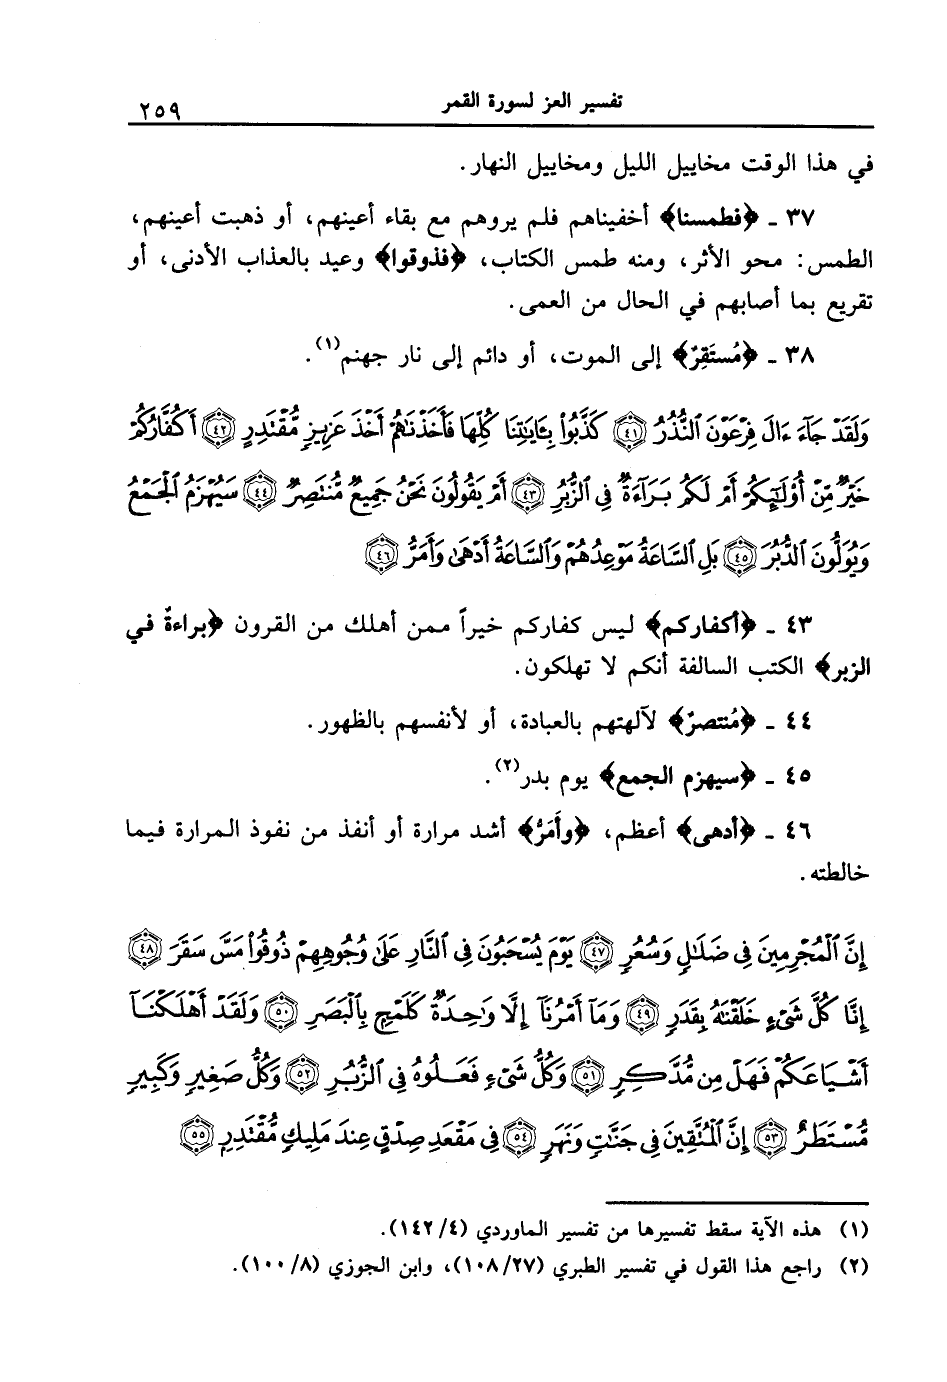 تفسير العز لسورة القمر ٢٥٩
في هذا الوقت مخاييل الليل ومخاييل النهار.
٣٧ ـ ﴿فطمسنا﴾ أخفيناهم فلم يروهم مع بقاء أعينهم، أو ذهبت أعينهم،
الطمس: محو الأثر، ومنه طمس الكتاب، ﴿فذوقوا﴾ وعيد بالعذاب الأدنى، أو
تقريع بما أصابهم في الحال من العمى.
٣٨ ـ ﴿مُستَقِرٌ﴾ إلى الموت، أو دائم إلى نار جهنم(١).
وَلَقَدْ جَآءَ ءَالَ فِرْعَوْنَ ٱلنُّذُرُ ﴿٤١﴾ كَذَّبُوا۟ بِـَٔايَـٰتِنَا كُلِّهَا فَأَخَذْنَـٰهُمْ أَخْذَ عَزِيزٍ مُّقْتَدِرٍ ﴿٤٢﴾ أَكُفَّارُكُمْ
خَيْرٌ مِّنْ أُو۟لَـٰٓئِكُمْ أَمْ لَكُم بَرَآءَةٌ فِى ٱلزُّبُرِ ﴿٤٣﴾ أَمْ يَقُولُونَ نَحْنُ جَمِيعٌ مُّنتَصِرٌ ﴿٤٤﴾ سَيُهْزَمُ ٱلْجَمْعُ
وَيُوَلُّونَ ٱلدُّبُرَ ﴿٤٥﴾ بَلِ ٱلسَّاعَةُ مَوْعِدُهُمْ وَٱلسَّاعَةُ أَدْهَىٰ وَأَمَرُّ ﴿٤٦﴾
٤٣ ـ ﴿أكفاركم﴾ ليس كفاركم خيراً ممن أهلك من القرون ﴿براءةٌ في
الزبر﴾ الكتب السالفة أنكم لا تهلكون.
٤٤ ـ ﴿مُنتصرٌ﴾ لآلهتهم بالعبادة، أو لأنفسهم بالظهور.
٤٥ ـ ﴿سيهزم الجمع﴾ يوم بدر(٢).
٤٦ ـ ﴿أدهى﴾ أعظم، ﴿وأَمَرُّ﴾ أشد مرارة أو أنفذ من نفوذ المرارة فيما
خالطته.
إِنَّ ٱلْمُجْرِمِينَ فِى ضَلَـٰلٍ وَسُعُرٍ ﴿٤٧﴾ يَوْمَ يُسْحَبُونَ فِى ٱلنَّارِ عَلَىٰ وُجُوهِهِمْ ذُوقُوا۟ مَسَّ سَقَرَ ﴿٤٨﴾
إِنَّا كُلَّ شَىْءٍ خَلَقْنَـٰهُ بِقَدَرٍ ﴿٤٩﴾ وَمَآ أَمْرُنَآ إِلَّا وَٰحِدَةٌ كَلَمْحٍۭ بِٱلْبَصَرِ ﴿٥٠﴾ وَلَقَدْ أَهْلَكْنَآ
أَشْيَاعَكُمْ فَهَلْ مِن مُّدَّكِرٍ ﴿٥١﴾ وَكُلُّ شَىْءٍ فَعَلُوهُ فِى ٱلزُّبُرِ ﴿٥٢﴾ وَكُلُّ صَغِيرٍ وَكَبِيرٍ
مُّسْتَطَرٌ ﴿٥٣﴾ إِنَّ ٱلْمُتَّقِينَ فِى جَنَّـٰتٍ وَنَهَرٍ ﴿٥٤﴾ فِى مَقْعَدِ صِدْقٍ عِندَ مَلِيكٍ مُّقْتَدِرٍۭ ﴿٥٥﴾
(١) هذه الآية سقط تفسيرها من تفسير الماوردي (١٤٢/٤).
(٢) راجع هذا القول في تفسير الطبري (١٠٨/٢٧)، وابن الجوزي (١٠٠/٨).